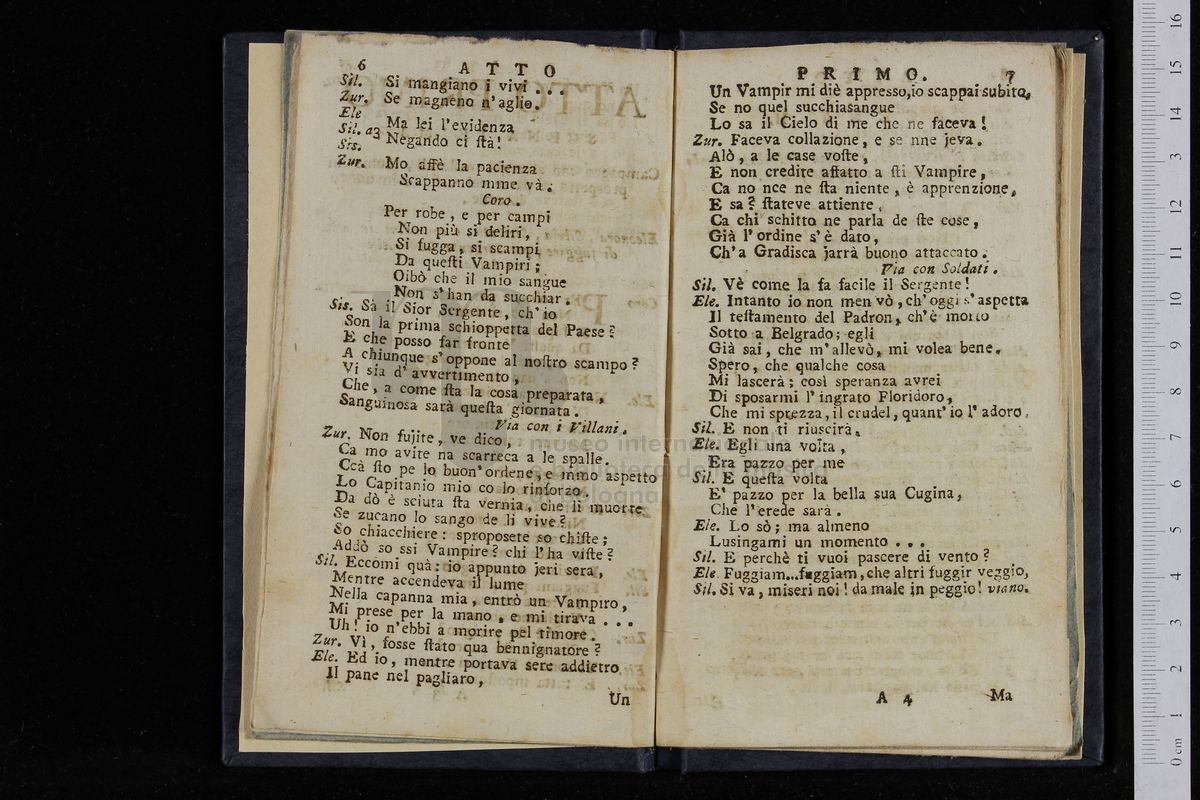 6 ATTO
Sil. Si mangiano i vivi . . .
Zur. Se magneno n'aglio.
Ele
Sil. a3 Ma lei l'evidenza
Sis. Negando ci ſtà!
Zur. Mo affè la pacienza
Scappanno mme và.
Coro.
Per robe, e per campi
Non più si deliri,
Si fugga, si scampi
Da queſti Vampiri;
Oibò che il mio sangue
Non s'han da succhiar.
Sis. Sà il Sior Sergente, ch'io
Son la prima schioppetta del Paese?
E che posso far fronte
A chiunque s'oppone al noſtro scampo?
Vi sia d'avvertimento,
Che, a come ſta la cosa preparata,
Sanguinosa sarà queſta giornata.
Via con i Villani.
Zur. Non fujite, ve dico,
Ca mo avite na scarreca a le spalle.
Ccà ſto pe lo buon'ordene, e mmo aspetto
Lo Capitanio mio co lo rinforzo.
Da dò è sciuta ſta vernia, che li muorte
Se zucano lo sango de li vive?
So chiacchiere: sproposete so chiſte;
Addò so ssi Vampire? chi l'ha viſte?
Sil. Eccomi quà: io appunto jeri sera,
Mentre accendeva il lume
Nella capanna mia, entrò un Vampiro,
Mi prese per la mano, e mi tirava . . .
Uh! io n'ebbi a morire pel timore.
Zur. Vì, fosse ſtato qua bennignatore?
Ele. Ed io, mentre portava sere addietro
Il pane nel pagliaro,
Un
PRIMO. 7
Un Vampir mi diè appresso, io scappai subito,
Se no quel succhiasangue
Lo sa il Cielo di me che ne faceva!
Zur. Faceva collazione, e se nne jeva.
Alò, a le case voſte,
E non credite affatto a ſti Vampire,
Ca no nce ne ſta niente, è apprenzione,
E sa? ſtateve attiente,
Ca chi schitto ne parla de ſte cose,
Già l'ordine s'è dato,
Ch'a Gradisca jarrà buono attaccato.
Via con Soldati.
Sil. Vè come la fa facile il Sergente!
Ele. Intanto io non men vò, ch'oggi s'aspetta
Il teſtamento del Padron, ch'è morto
Sotto a Belgrado; egli
Già sai, che m'allevò, mi volea bene.
Spero, che qualche cosa
Mi lascerà; così speranza avrei
Di sposarmi l'ingrato Floridoro,
Che mi sprezza, il crudel, quant'io l'adoro.
Sil. E non ti riuscirà.
Ele. Egli una volta,
Era pazzo per me
Sil. E queſta volta
E' pazzo per la bella sua Cugina,
Che l'erede sarà.
Ele. Lo sò; ma almeno
Lusingami un momento . . .
Sil. E perchè ti vuoi pascere di vento?
Ele Fuggiam...fuggiam, che altri fuggir veggio,
Sil. Si va, miseri noi! da male in peggio! viano.
A 4 Ma
museo internazionale
e biblioteca della musica
di Bologna
0 cm 1 2 3 4 5 6 7 8 9 10 11 12 13 14 15 16